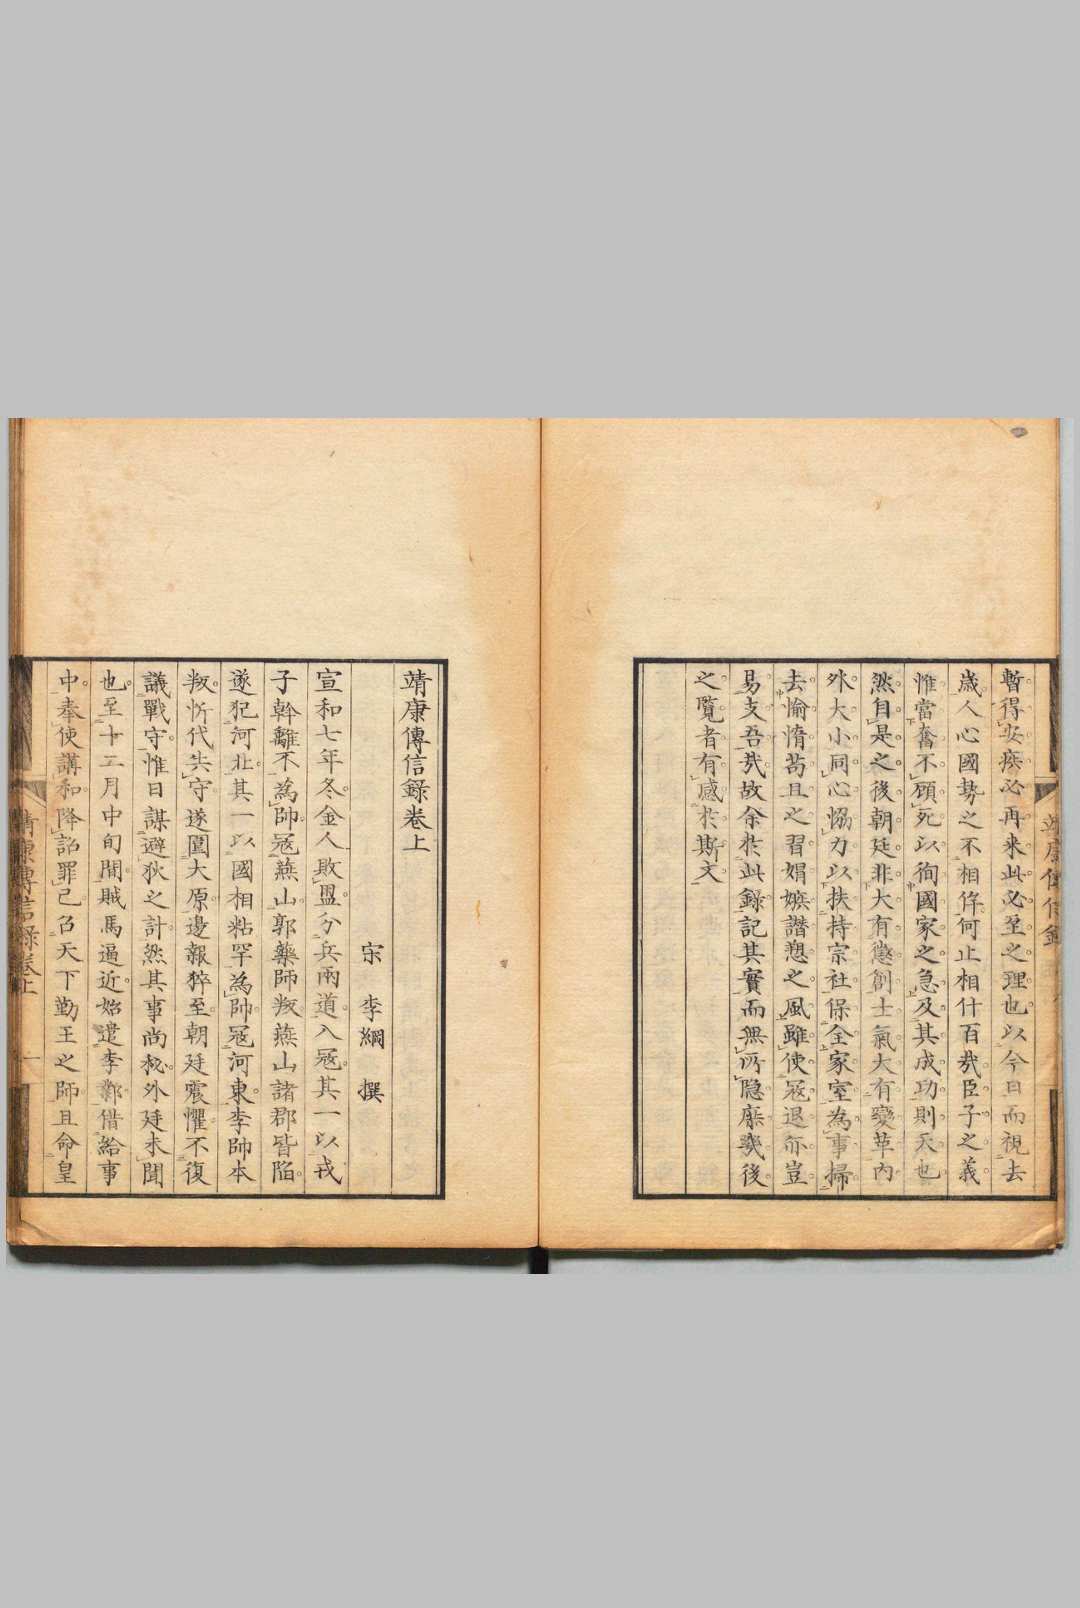 暫得安癸必再来此必至之理也以今日而視去
歳人心國勢之不相侔何止相什百㢤臣子之義
惟當奮不顧死以徇國家之急及其成功則天也
然自是之後朝廷非大有懲創士氣大有變革内
外大小同心恊力以扶持宗社保全家室為事掃
去愉惰苟且之習娟嫉譖愬之風雖使冦退亦豈
易支吾㢤故余於此録記其實而無所隐庶幾後
之覽者有感於斯文
靖康傳信錄卷上
宋 李綱 撰
宣和七年冬金人敗盟分兵兩道入冦其一以戎
子斡離不為帥冦燕山郭藥師叛燕山諸郡皆陷
遂犯河北其一以國相粘罕為帥冦河東李師本
叛忻代失守遂圍太原邊報猝至朝廷震懼不復
議戰守惟日謀避狄之計然其事尚秘外廷未聞
也至十二月中旬間賊馬逼近始遣李鄴借給事
中奉使講和降詔罪己召天下勤王之師且命皇
靖康傳信錄卷上 一